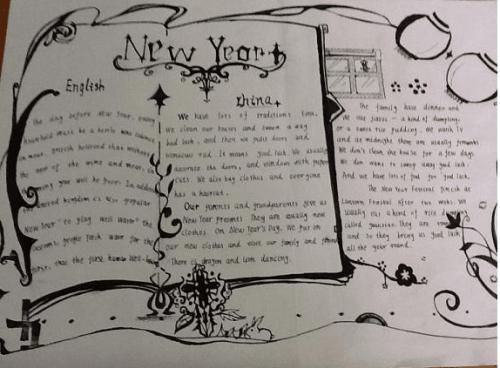 New Year
English
The day before New Year, every
household must be a bottle
in meat. British believed that without
the rest of the wine and meat, in
coming year will be poor. In addition
United Kingdom is also popular
New Year "to play well warm" the
custom, people fetch water for the
first, that the first
China
We have lots of traditions too.
We clean our houses and sweep away
bad luck. and then we paste doors and
windows red. It means good luck. We usually
decorate the doors and windows with paper
cuts. We also buy clothes and everyone
has a haircut.
Our parents and grandparents give us
New Year presents. They are usually new
clothes. On New Year's Day. We put on
our new clothes and visit our family and friends
There is dragon and lion dancing.
The family have dinner and
We eat jiaozi - a kind of dumpling,
or a sweet rice pudding. We watch TV
and at midnight there are usually fireworks
We don't clean the house for a few days.
We don't want to sweep away good luck.
And we have lots of food for good luck.
The New Year Festival finish at
Lantern Festival after two weeks. We
usually eat a kind of rice
called yuanxiao. They are
and so they bring us good luck
all the year round.